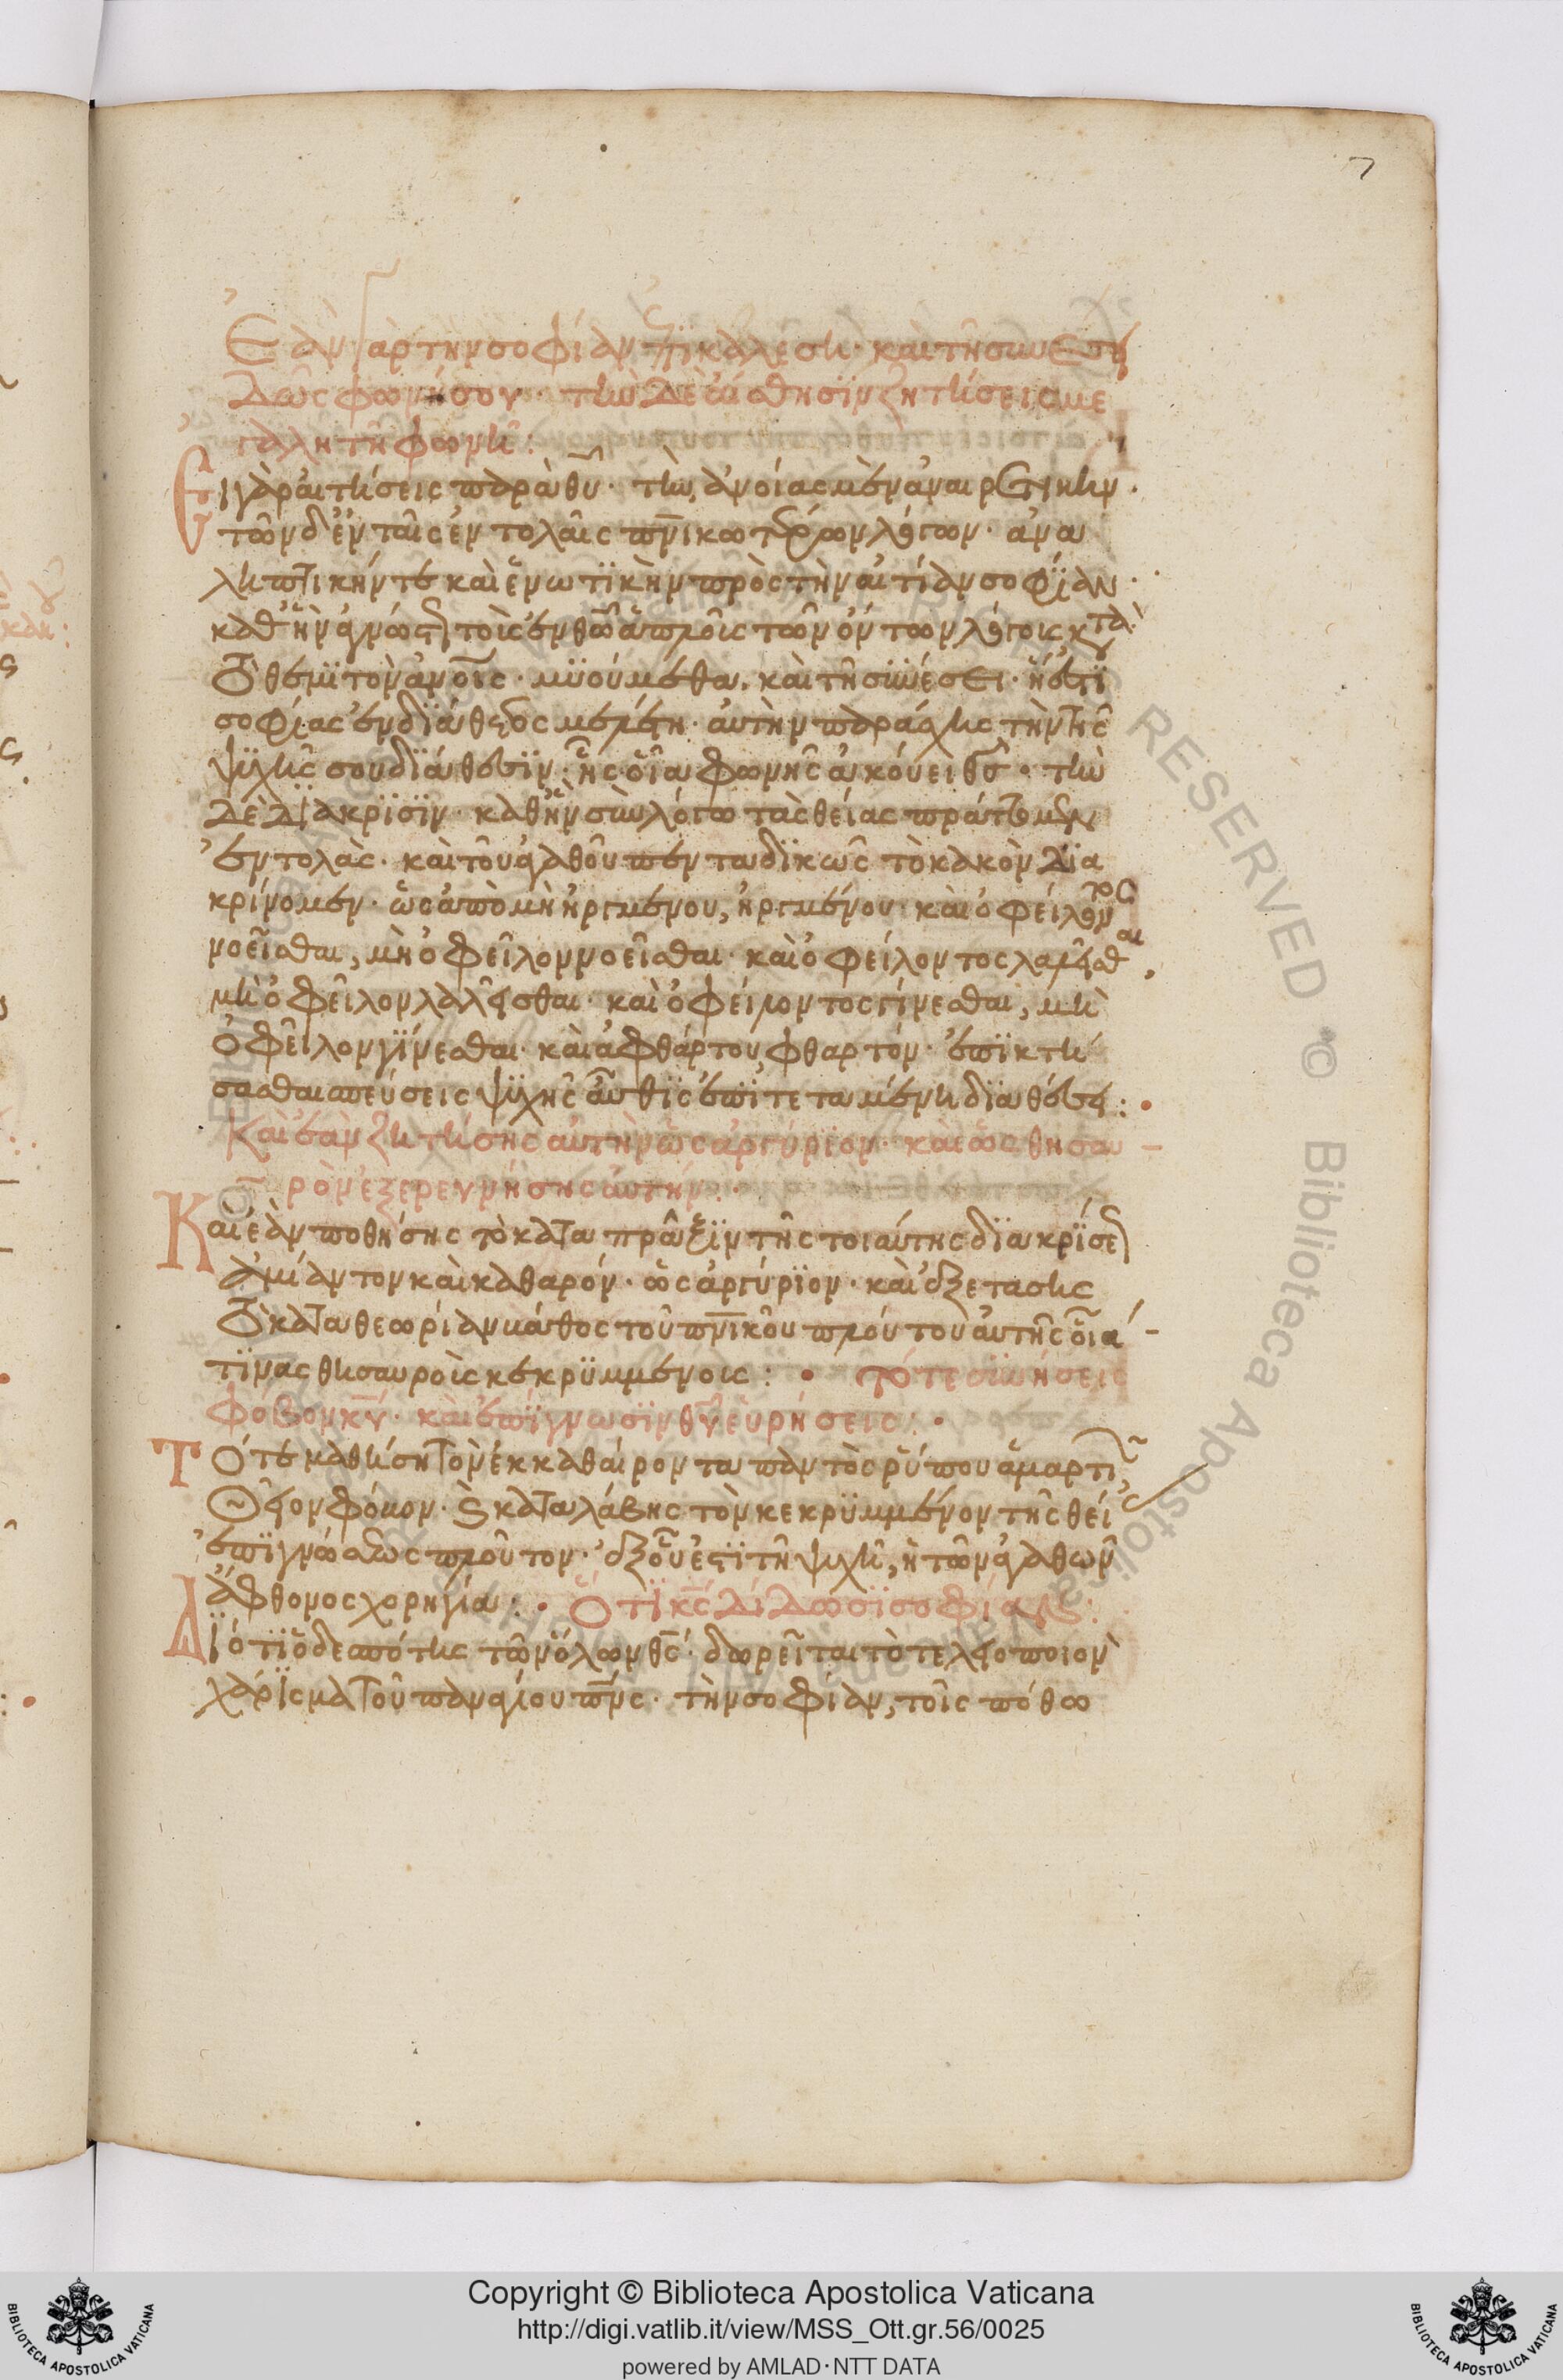 7
Ἐὰν γὰρ τὴν σοφίαν ἐπικαλέσῃ· καὶ τῇ συνέσει
δῶς φωνήν σου· τὴν δὲ αἴσθησϊν ζητήσεις με
γάλῃ τῇ φωνῇ:
Εἰ γὰρ αἰτήσεις παρὰ θυ· τὴν ἀνοίας μὲν ἀναιρετικὴν·
τῶν δ' ἐν ταῖς ἐντολαῖς πνικωτέρων λόγων· ἀνα
ληπτικήν τε καὶ ἑνωτϊκὴν πρὸς τὴν αἰτίαν σοφΐαν·
καθ' ἣν ἀγνώστ τοῖς ἐν θῶ ἁπλοῖς τῶν ὄντων λόγοις κ τὰ
θεμϊτὸν ἀνοις· μϋούμεθα. καὶ τῇ συνέσει· ἥ ἐστϊ
σοφίας ἐνδϊάθετος μελέτη· αὐτὴν παράσχῃς τὴν τῆς
ψϋχῆς σου δϊάθεσϊν· ἧς οἷα φωνῆς ἀκούει θς· τὴν
δὲ δϊάκρϊσϊν· καθ' ἣν σὺν λόγω τὰς θείας πράττομεν
ἐντολὰς· καὶ τοῦ ἀγαθοῦ παντα δϊκῶς τὸ κακὸν δϊα
κρίνομεν· ὡς ἀπὸ μὴ ἠργμένου, ἠργμένου· καὶ ὀφείλοντος
νοεῖσθαι, μὴ ὀφεῖλον νοεῖσθαι· καὶ ὀφείλοντος λαλεῖσθαι,
μὴ ὀφεῖλον λαλεῖσθαι· καὶ ὀφείλοντος γίνεσθαι, μὴ
ὀφεῖλον γϊνεσθαι· καὶ ἀφθάρτου φθαρτόν· ἐπϊκτή
σασθαι σπεύσεις ψϋχῆς αὖθϊς ἐπϊτεταμένη δϊαθέσει:
Καὶ ἐὰν ζητήσῃς αὐτὴν ὡς ἀργύρϊον· καὶ ὡς θησαυ
ρὸν ἐξερευνήσῃς αὐτήν:
Καὶ ἐὰν ποθήσῃς τὸ κατα πρᾶξϊν τῆς τοιαύτης δϊακρϊσε
ἀμίαντον καὶ καθαρόν· ὡς ἀργύρϊον· καὶ ἐξετασῃς
τὸ κατα θεωρίαν κάθος τοῦ πνικοῦ πλούτου αὐτῆς οἷα
τϊνας θησαυροὶς κεκρϋμμένοις: τότε συνήσεις
φόβον κυ· καὶ ἐπϊγνωσϊν θυ εὑρήσεις:
Τότε μαθήσῃ τὸν ἐκκαθαίροντα παντὸς ρϋπου ἁμαρτί
θεῖον φόβον· καταλάβῃς τὸν κεκρϋμμένον τῆς θεί
ἐπϊγνώσεως πλοῦτον· ἐξ οὗ ἐστϊ τῇ ψυχῇ, ἡ τῶν ἀγαθῶν
ἄφθονος χορηγία: Ὅτϊ κς δίδωσϊ σοφίαν:
Δϊότϊ ὁ δεσπότης τῶν ὅλων θς· δωρεῖται τὸ τελειοποιὸν
χάρϊσμα τοῦ παναγίου πνς· τὴν σοφίαν, τοῖς πόθω
Copyright © Biblioteca Apostolica Vaticana
http://digi.vatlib.it/view/MSS_Ott.gr.56/0025
powered by AMLAD·NTT DATA
BIBLIOTECA APOSTOLICA VATICANA
BIBLIOTECA APOSTOLICA VATICANA